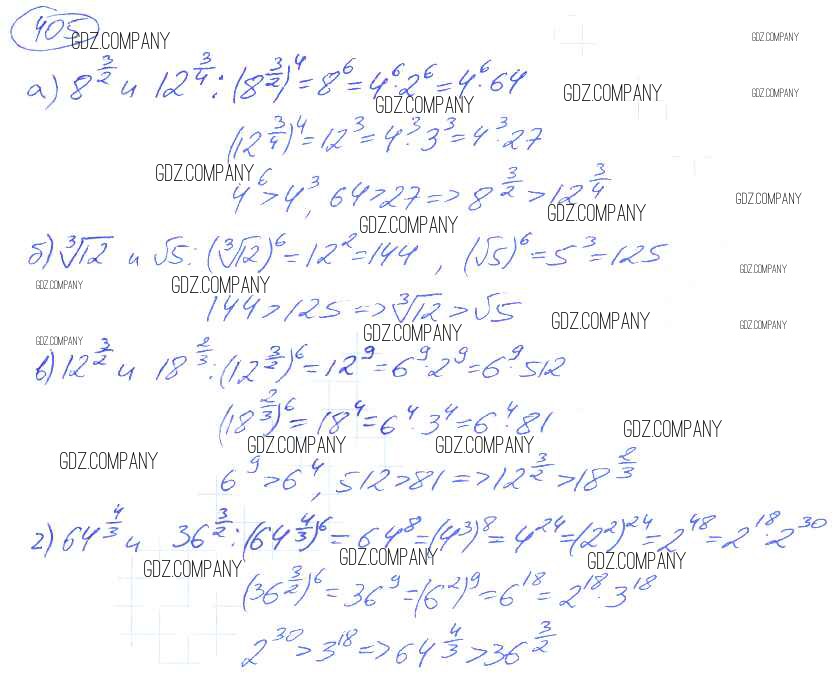 405
GDZ.COMPANY GDZ.COMPANY
а) 8^(3/2) и 12^(3/4) : (8^(3/2))^4 = 8^6 = 4^6 · 2^6 = 4^6 · 64
GDZ.COMPANY GDZ.COMPANY GDZ.COMPANY
(12^(3/4))^4 = 12^3 = 4^3 · 3^3 = 4^3 · 27
GDZ.COMPANY
4^6 > 4^3, 64 > 27 => 8^(3/2) > 12^(3/4)
GDZ.COMPANY GDZ.COMPANY GDZ.COMPANY
б) ∛12 и √5 : (∛12)^6 = 12^2 = 144, (√5)^6 = 5^3 = 125
GDZ.COMPANY GDZ.COMPANY GDZ.COMPANY
144 > 125 => ∛12 > √5
GDZ.COMPANY GDZ.COMPANY GDZ.COMPANY GDZ.COMPANY
в) 12^(3/2) и 18^(2/3) : (12^(3/2))^6 = 12^9 = 6^9 · 2^9 = 6^9 · 512
(18^(2/3))^6 = 18^4 = 6^4 · 3^4 = 6^4 · 81
GDZ.COMPANY GDZ.COMPANY GDZ.COMPANY GDZ.COMPANY
6^9 > 6^4, 512 > 81 => 12^(3/2) > 18^(2/3)
г) 64^(4/3) и 36^(3/2) : (64^(4/3))^6 = 64^8 = (4^3)^8 = 4^24 = (2^2)^24 = 2^48 = 2^18 · 2^30
GDZ.COMPANY GDZ.COMPANY GDZ.COMPANY
(36^(3/2))^6 = 36^9 = (6^2)^9 = 6^18 = 2^18 · 3^18
2^30 > 3^18 => 64^(4/3) > 36^(3/2)